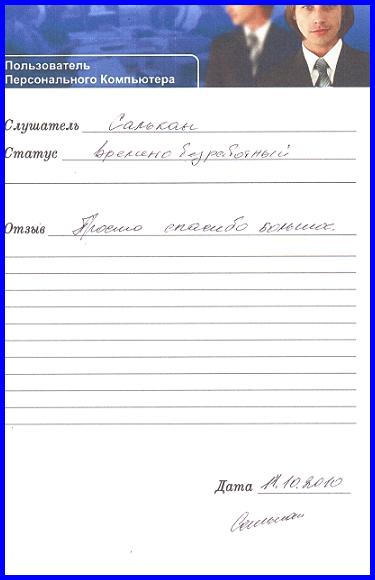 Пользователь
Персонального Компьютера
Слушатель Салькан
Статус времено безработный
Отзыв Просто спасибо большое.
Дата 14.10.2010